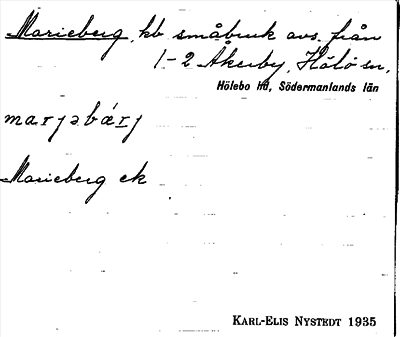 Marieberg, kb småbruk avs. från
1-2 Åkerby, Hölö sn,
Hölebo hd, Södermanlands län
marjəbárj
Marieberg ek
KARL-ELIS NYSTEDT 1935